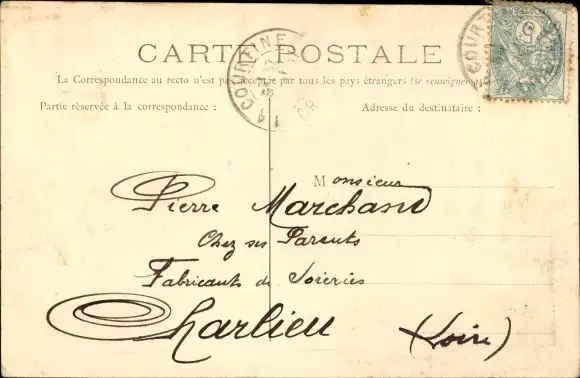 CARTE POSTALE
La Correspondance au recto n'est pas acceptée par tous les pays étrangers (se renseigner
Partie réservée à la correspondance :
Adresse du destinataire :
COURTINE
COURTI
Monsieur
Pierre Marchand
Chez ses Parents
Fabricants de Soieries
Charlieu (Loire)